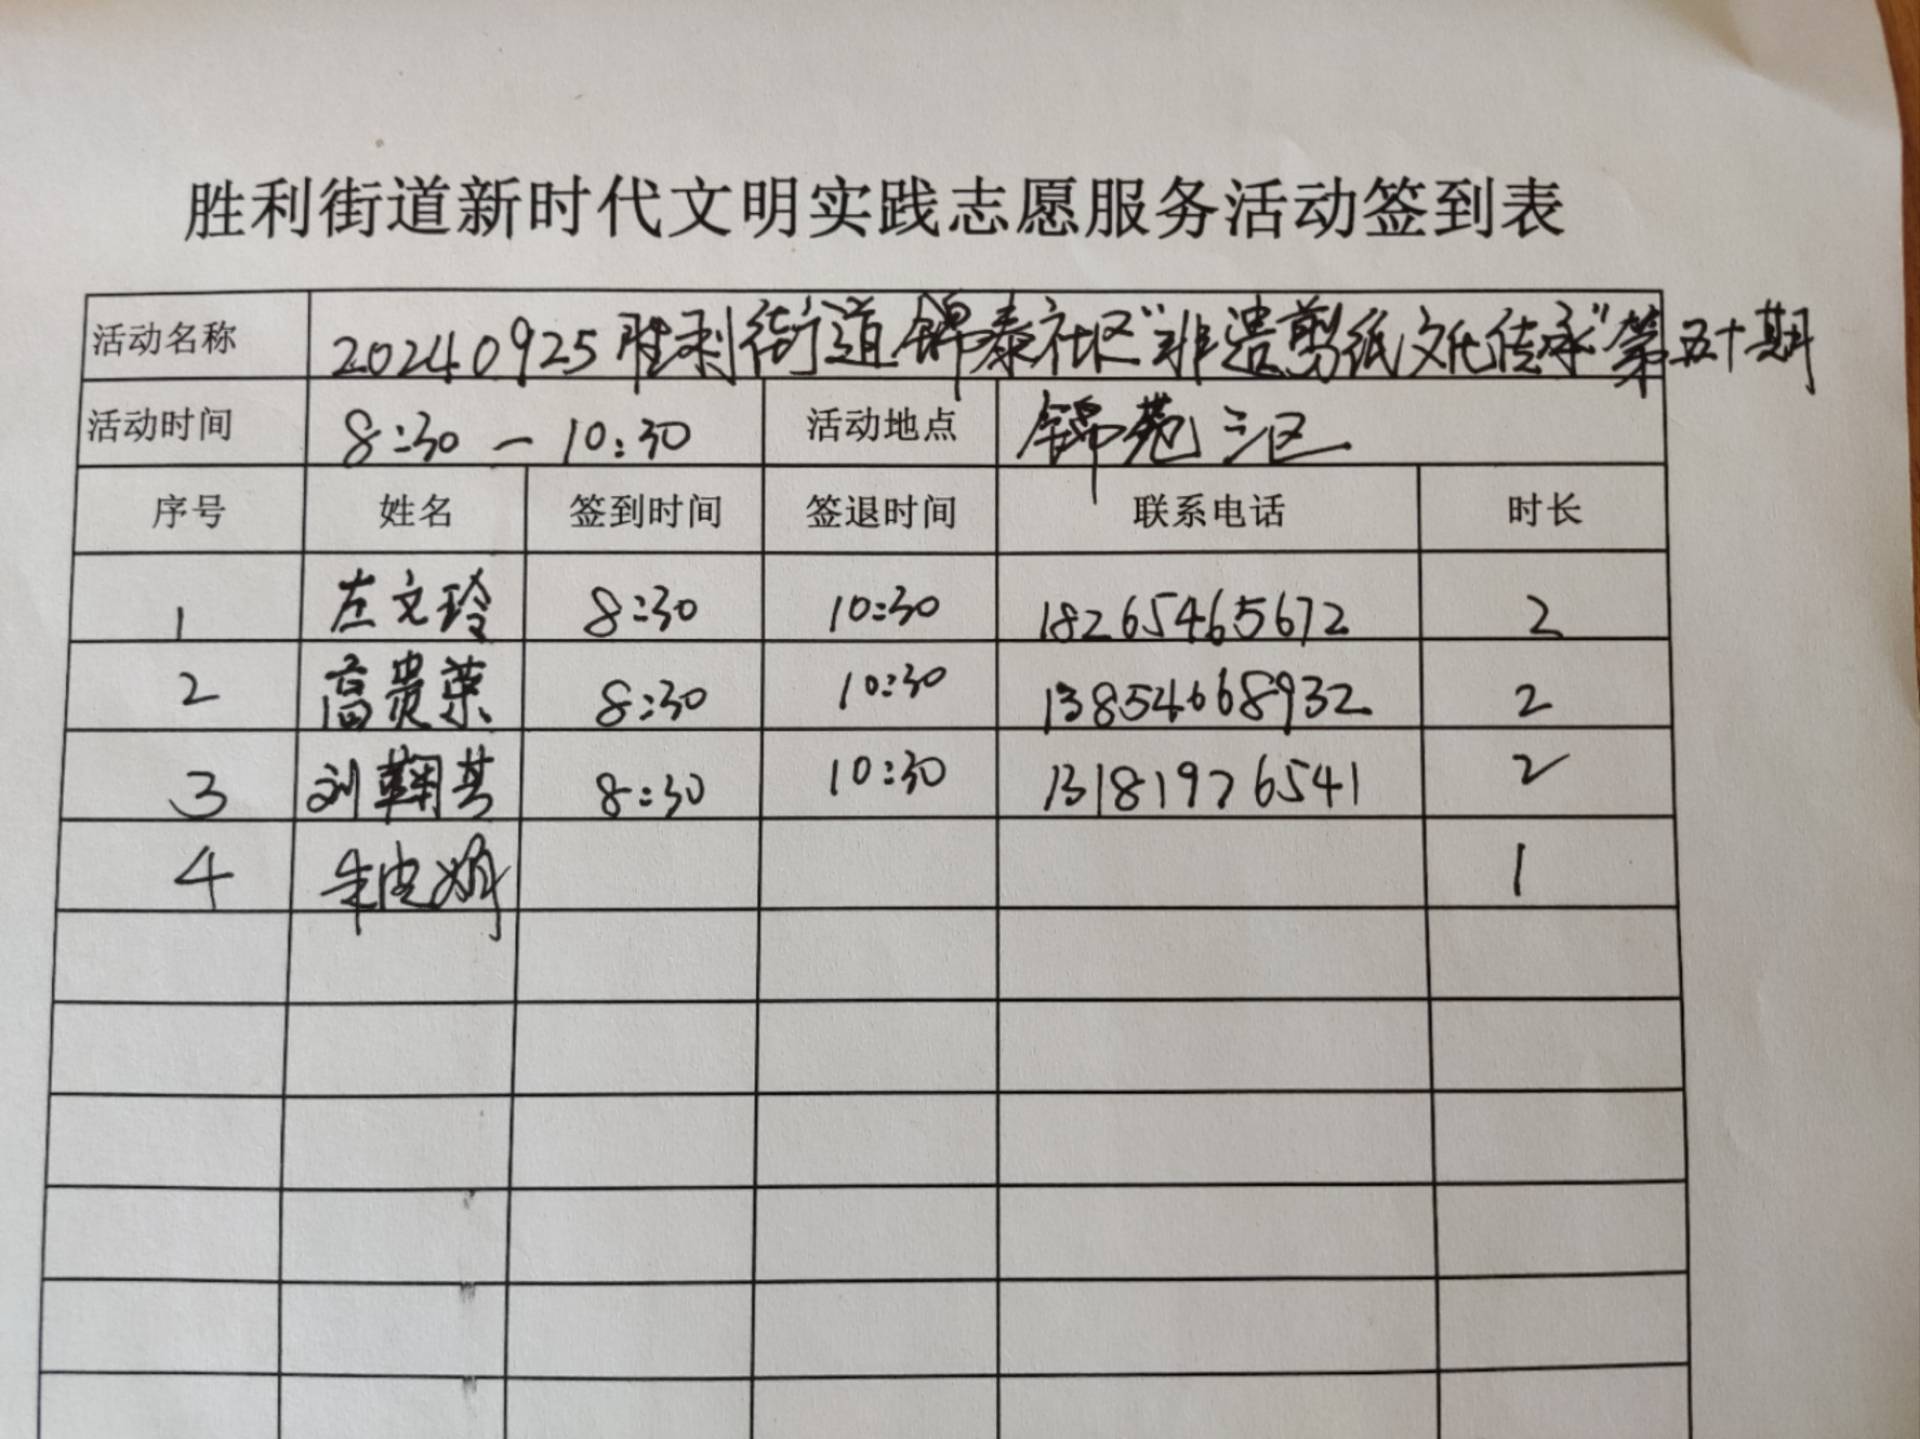 胜利街道新时代文明实践志愿服务活动签到表
活动名称 20240925胜利街道锦泰社区“非遗剪纸文化传承”第五十期
活动时间 8:30 — 10:30 活动地点 锦苑三区
序号 姓名 签到时间 签退时间 联系电话 时长
1 左文玲 8:30 10:30 18265465672 2
2 高贵荣 8:30 10:30 13854668932 2
3 刘鞠其 8:30 10:30 13181976541 2
4 朱 娟 1